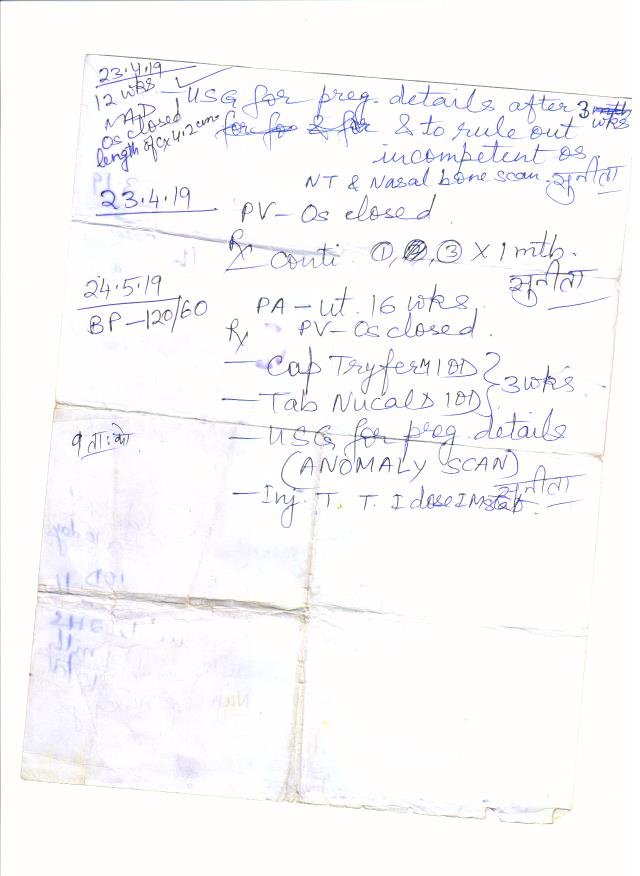 23.4.19
12 wks
NAD
Os closed
length of cx 4.2 cms
- USG for preg. details after 3 wks
& to rule out
incompetent os
NT & Nasal bone scan. सुनीता
23.4.19
PV - Os closed
Rx Conti ①, ②, ③ X 1 mth.
सुनीता
24.5.19
BP - 120/60
PA - ut. 16 wks
Rx PV - Os closed.
- Cap Tryfer 1 OD } 3 wks
- Tab Nucal D 1 OD
- USG for preg. details
(ANOMALY SCAN)
९ ता: को
- Inj. T. T. I dose IM stat. सुनीता